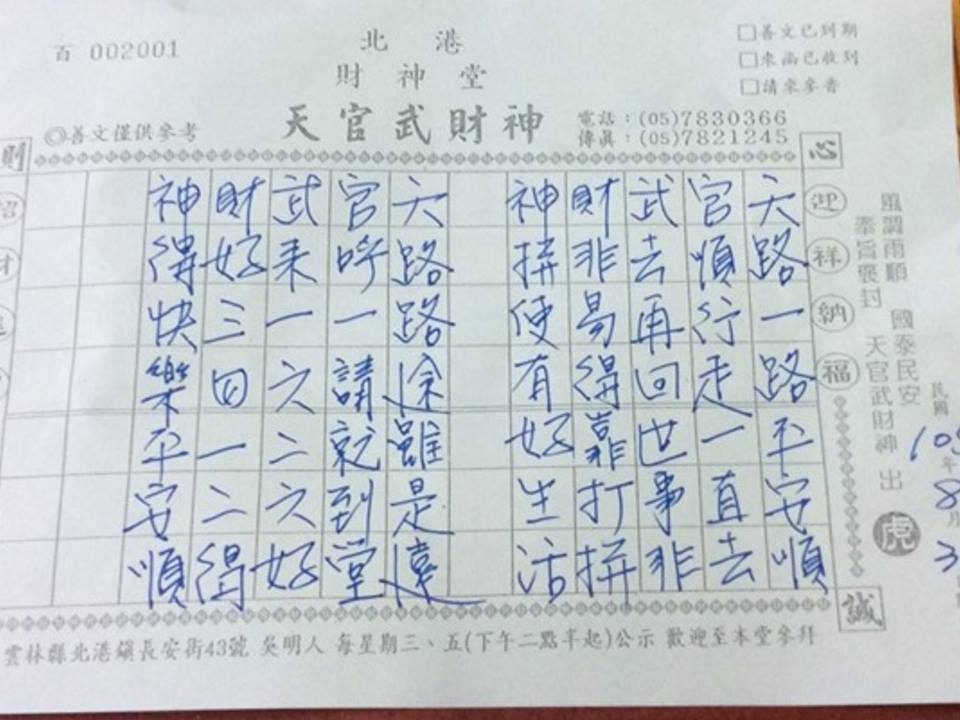 百 002001
北港
財神堂
天官武財神
◎善文僅供參考
□善文已到期
□來函已收到
□請來參香
電話：(05)7830366
傳真：(05)7821245
心
誠
則
迎祥納福
風調雨順 國泰民安
奉旨褒封 天官武財神 出
虎
民國 年8月3
天路一路平安順
官順行走一直去
武去再回世事非
財非易得靠打拼
神拼便有好生活
天路路途雖是遠
官呼一請就到堂
武來一六二六好
財好三四一二得
神得快樂平安順
雲林縣北港鎮長安街43號 吳明人 每星期三、五(下午二點半起)公示 歡迎至本堂參拜